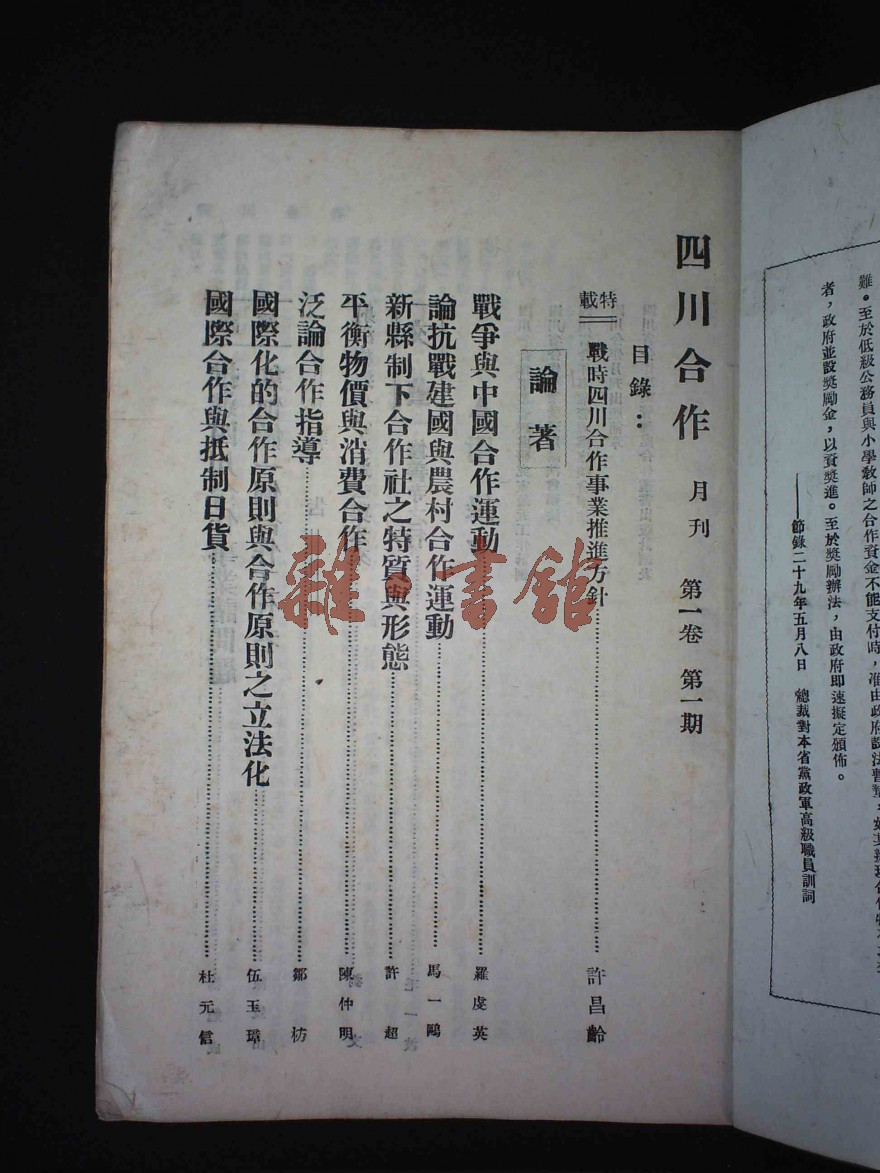 難。至於低級公務員與小學教師之合作資金不能支付時，准由政府設法暫墊，
者，政府並設獎勵金，以資獎進。至於獎勵辦法，由政府即速擬定頒佈。
——節錄二十九年五月八日　總裁對本省黨政軍高級職員訓詞
四川合作 月刊 第一卷 第一期
目錄：
特載 戰時四川合作事業推進方針……許昌齡
論著
戰爭與中國合作運動……羅虔英
論抗戰建國與農村合作運動……馬一鷗
新縣制下合作社之特質與形態……許超
平衡物價與消費合作……陳仲明
泛論合作指導……鄒枋
國際化的合作原則與合作原則之立法化……伍玉璋
國際合作與抵制日貨……杜元信
雜·書館